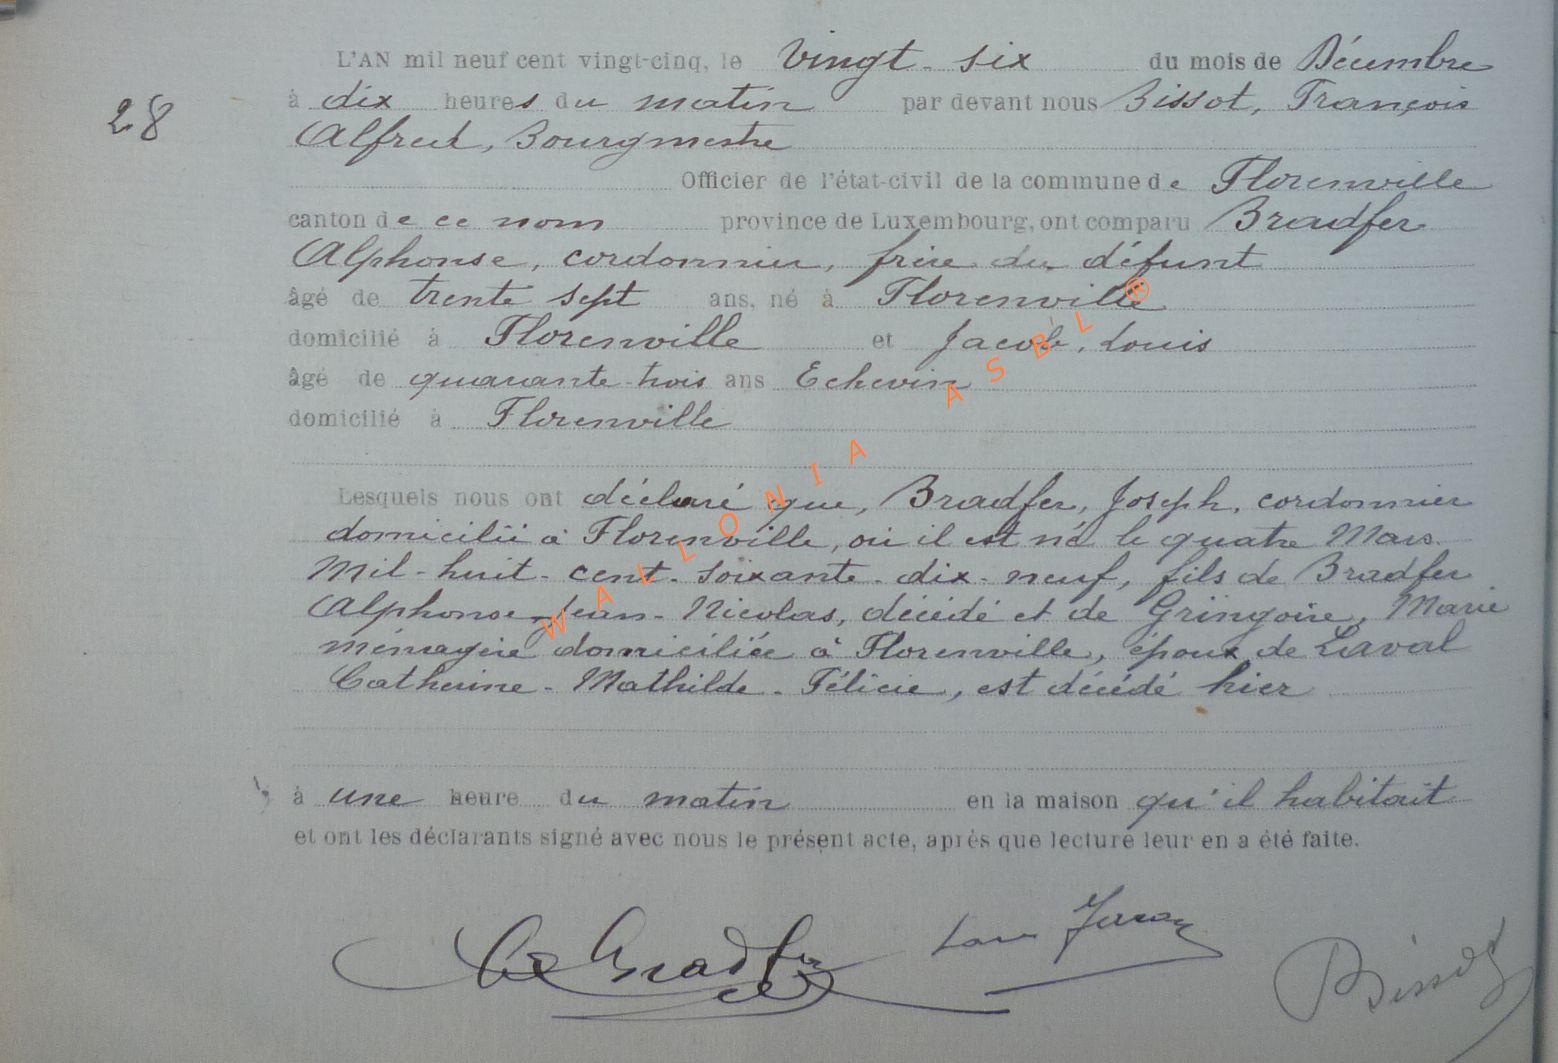 L'AN mil neuf cent vingt-cinq, le vingt-six du mois de Décembre
28
à dix heures du matin par devant nous Bissot, François
Alfred, Bourgmestre
Officier de l'état-civil de la commune de Florenville
canton de ce nom province de Luxembourg, ont comparu Bradfer
Alphonse, cordonnier, frère du défunt
âgé de trente sept ans, né à Florenville
domicilié à Florenville et Jacob, Louis
âgé de quarante-trois ans Echevin
domicilié à Florenville
Lesquels nous ont déclaré que, Bradfer, Joseph, cordonnier
domicilié à Florenville, où il est né le quatre Mars
Mil-huit-cent-soixante-dix-neuf, fils de Bradfer
Alphonse-Jean-Nicolas, décédé et de Gringoire, Marie
ménagère domiciliée à Florenville, époux de Laval
Catherine-Mathilde-Félicie, est décédé hier
à une heure du matin en la maison qu'il habitait
et ont les déclarants signé avec nous le présent acte, après que lecture leur en a été faite.
Bradfer
Bissot
WALLONIA ASBL ®